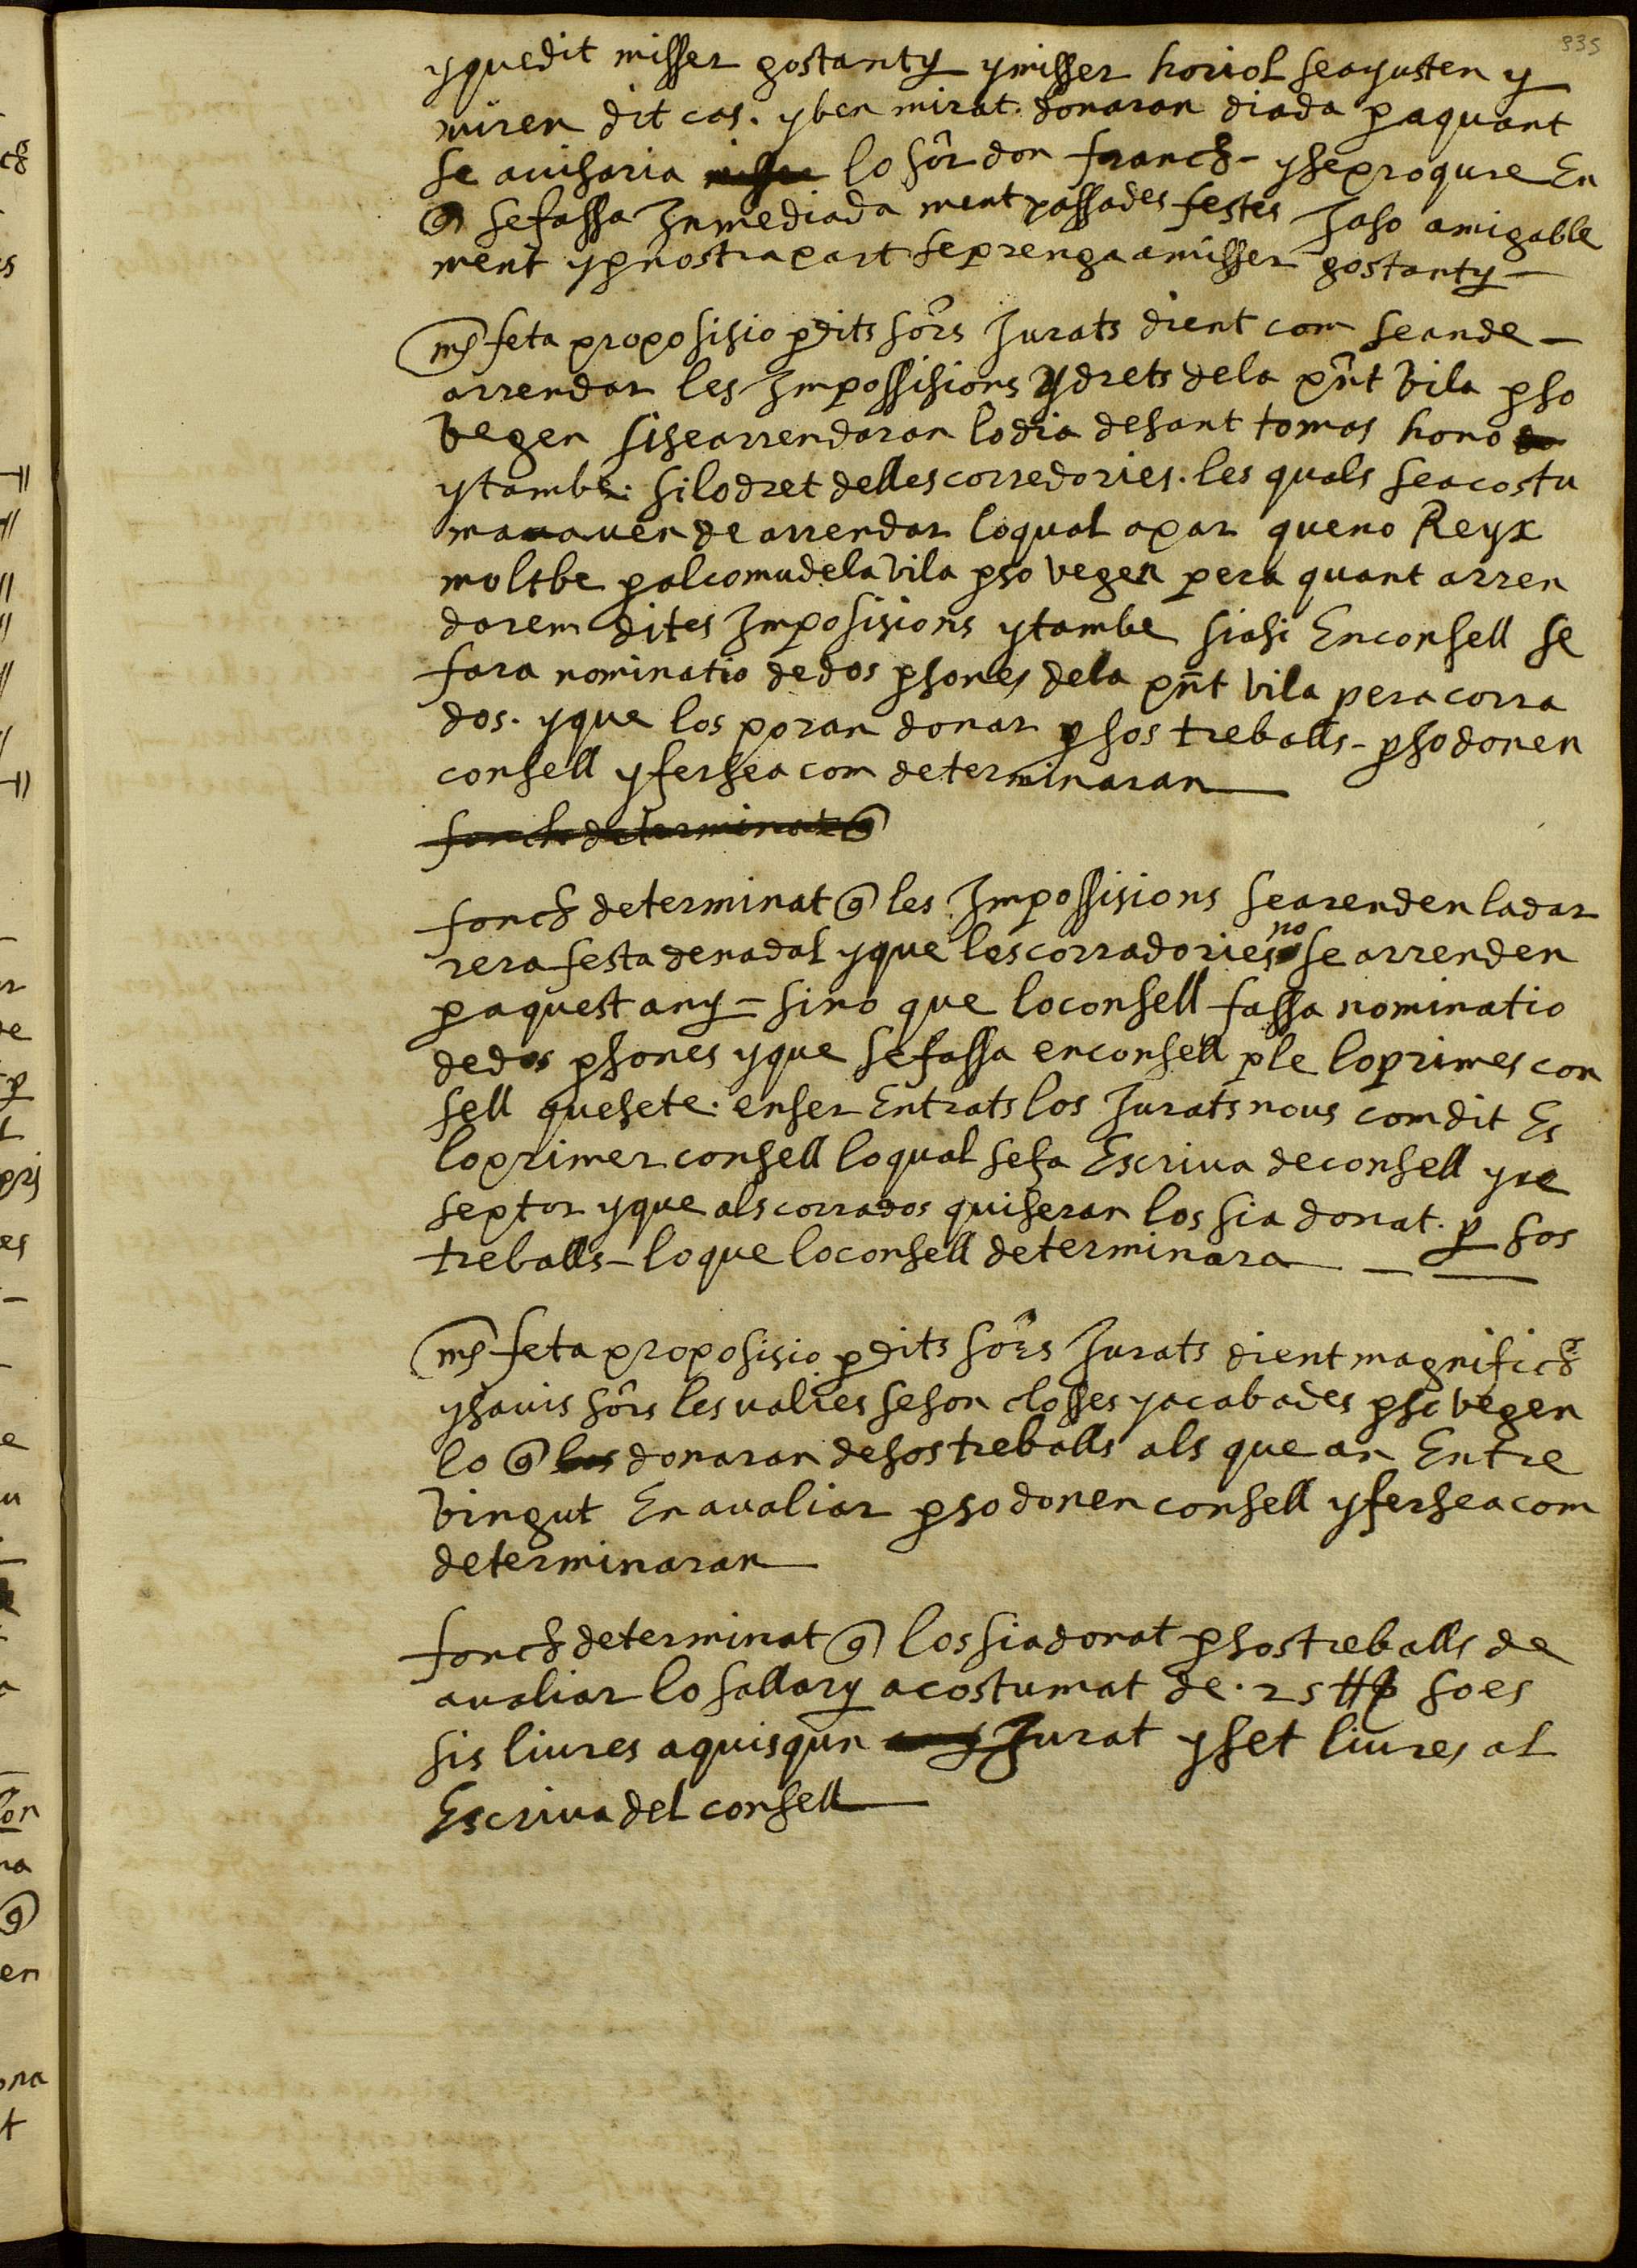 335
yquedit misser gostanty ymisser horiol seayusten y
miren dit cas. yben mirat. donaran diada p aquant
se avisaria lo sôr don franch - yseproqure En
q sefassa Inmediada ment passades festes Jaso amigable
ment yp nostra part seprenga amisser gostanty —
ms feta proposisio p dits sôrs Jurats dient com seande —
arrendar les Impossisions ydrets dela pñt vila pso
vegen sisearrendaran lodia desant tomas hono
ytambe. silodret dellescorredories. les quals seacostu
mavaven de arrendar loqual apar queno Reyx
moltbe p alcomudelavila pso vegen pera quant arren
darem dites Imposisions ytambe siasi Enconsell se
fara nominatio dedos psones dela pñt vila peracorra
dos. yque los poran donar p sos treballs - psodonen
consell yfersea com determinaran
fonch determinat q
fonch determinat q les Impossisions searenden ladar
rera festa denadal yque lescorradories no se arrenden
p aquest any - sino que loconsell fassa nominatio
dedos psones yque sefassa enconsell ple loprimes con
sell quesete. enser Entrats los Jurats nous comdit Es
loprimer consell loqual sefa Escriva deconsell yre
septor yque alscorrados quiseran los sia donat. p sos
treballs - loque loconsell determinara
ms feta proposisio p dits sôrs Jurats dient magnifichs
ysavis sôrs lesvalies seson closses yacabades pso vegen
lo q los donaran desostreballs als que an Entre
vingut Enavaliar psodonen consell yfersea com
determinaran
fonch determinat q lossiadonat p sostreballs de
avaliar lo sallary acostumat de. 25 ₶ soes
sis liures aquisqun Jurat yset liures al
Escriva del consell